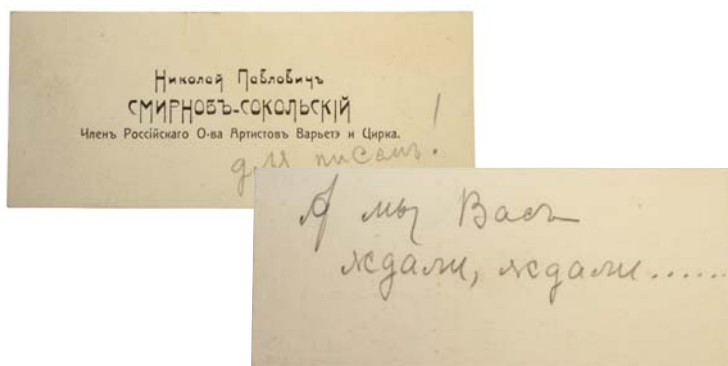 Николай Павловичъ
СМИРНОВЪ-СОКОЛЬСКІЙ
Членъ Россійскаго О-ва Артистовъ Варьетэ и Цирка.
для писемъ!
А мы Васъ
ждали, ждали......